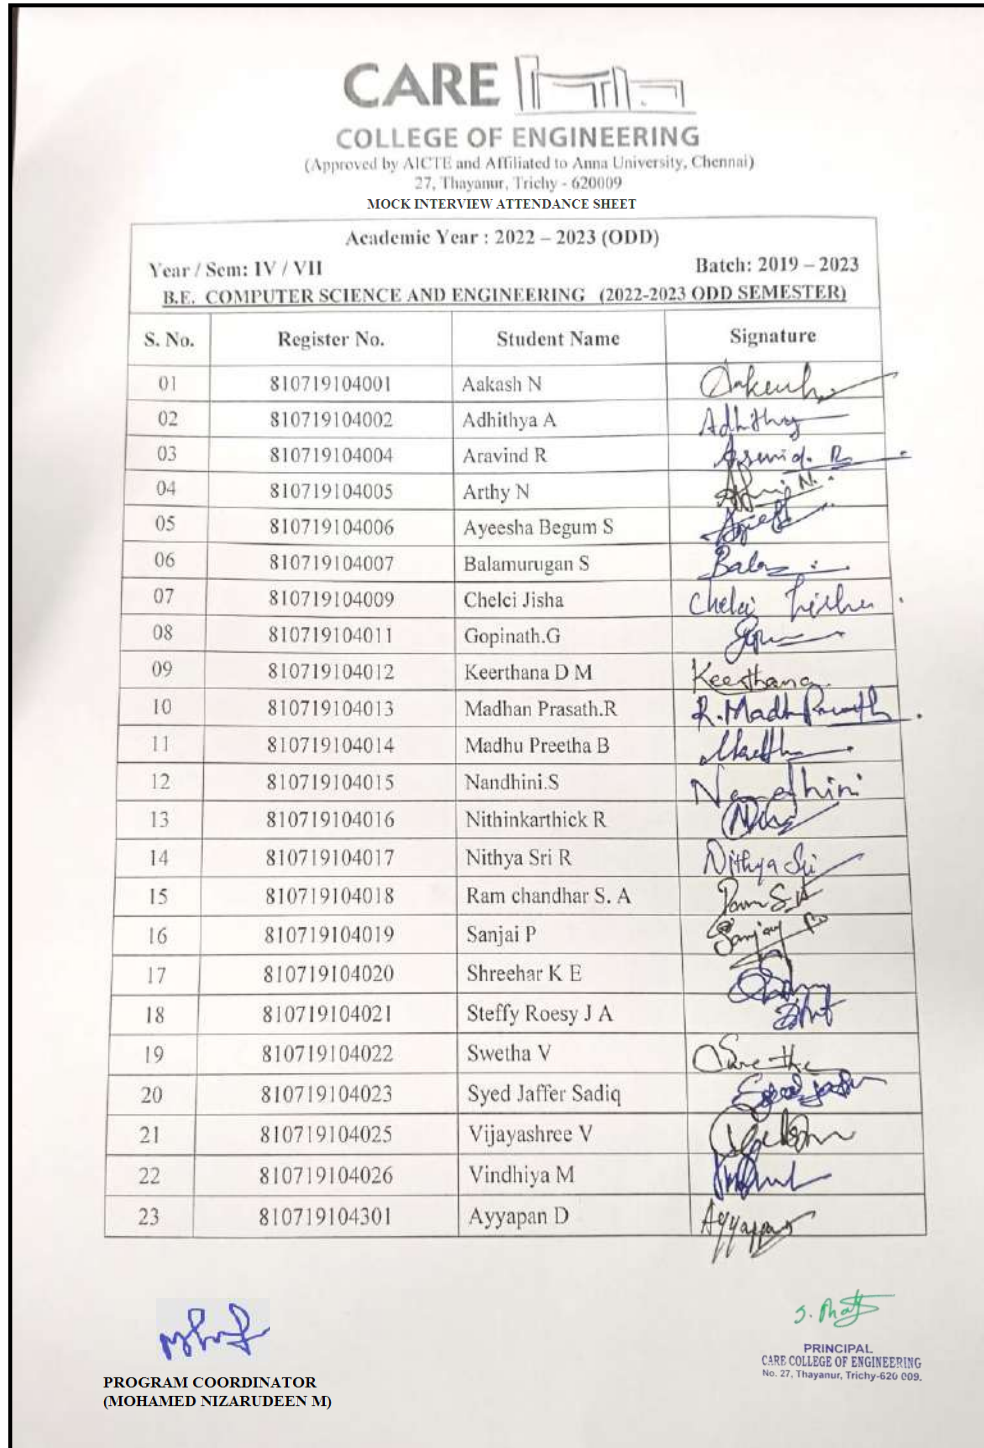 CARE
COLLEGE OF ENGINEERING
(Approved by AICTE and Affiliated to Anna University, Chennai)
27, Thayanur, Trichy - 620009
MOCK INTERVIEW ATTENDANCE SHEET
Academic Year : 2022 – 2023 (ODD)
Year / Sem: IV / VII Batch: 2019 – 2023
B.E. COMPUTER SCIENCE AND ENGINEERING (2022-2023 ODD SEMESTER)
S. No. Register No. Student Name Signature
01 810719104001 Aakash N
02 810719104002 Adhithya A Adhithy
03 810719104004 Aravind R
04 810719104005 Arthy N
05 810719104006 Ayeesha Begum S
06 810719104007 Balamurugan S
07 810719104009 Chelci Jisha Chelci
08 810719104011 Gopinath.G
09 810719104012 Keerthana D M Keerthana
10 810719104013 Madhan Prasath.R
11 810719104014 Madhu Preetha B
12 810719104015 Nandhini.S Nandhini
13 810719104016 Nithinkarthick R
14 810719104017 Nithya Sri R Nithya Sri
15 810719104018 Ram chandhar S. A
16 810719104019 Sanjai P
17 810719104020 Shreehar K E
18 810719104021 Steffy Roesy J A
19 810719104022 Swetha V
20 810719104023 Syed Jaffer Sadiq
21 810719104025 Vijayashree V
22 810719104026 Vindhiya M
23 810719104301 Ayyapan D
PROGRAM COORDINATOR
(MOHAMED NIZARUDEEN M)
PRINCIPAL
CARE COLLEGE OF ENGINEERING
No. 27, Thayanur, Trichy-620 009.